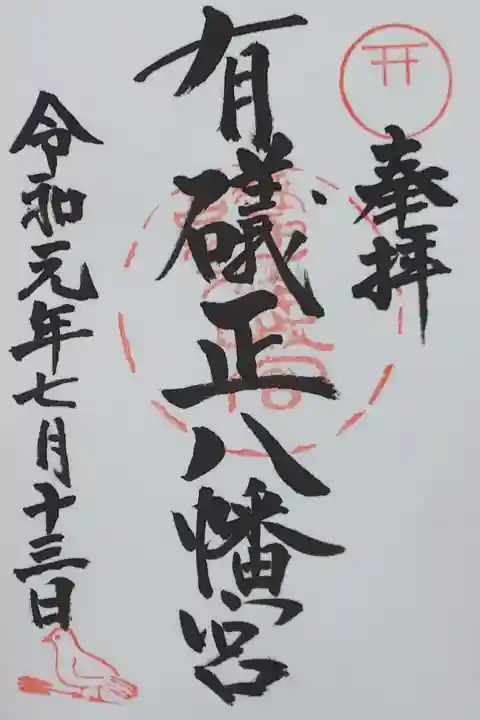 奉拝
有礒正八幡宮
令和元年七月十三日